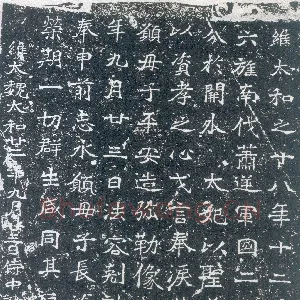 維太和之廿八年十二
六旌南伐蕭逆軍國二
分於 太妃以聖
以資孝之心戈言奉淚
願母子平安造弥勒像
年九月廿三日法容剋
奉申前志永願母子長
榮期一切群生咸同其
維大魏太和廿二 九 侍中